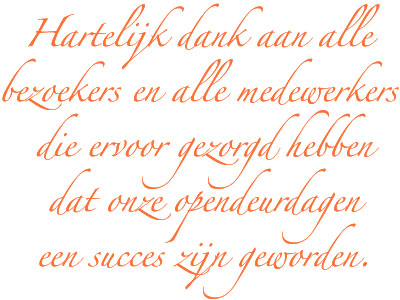 Hartelijk dank aan alle
bezoekers en alle medewerkers
die ervoor gezorgd hebben
dat onze opendeurdagen
een succes zijn geworden.